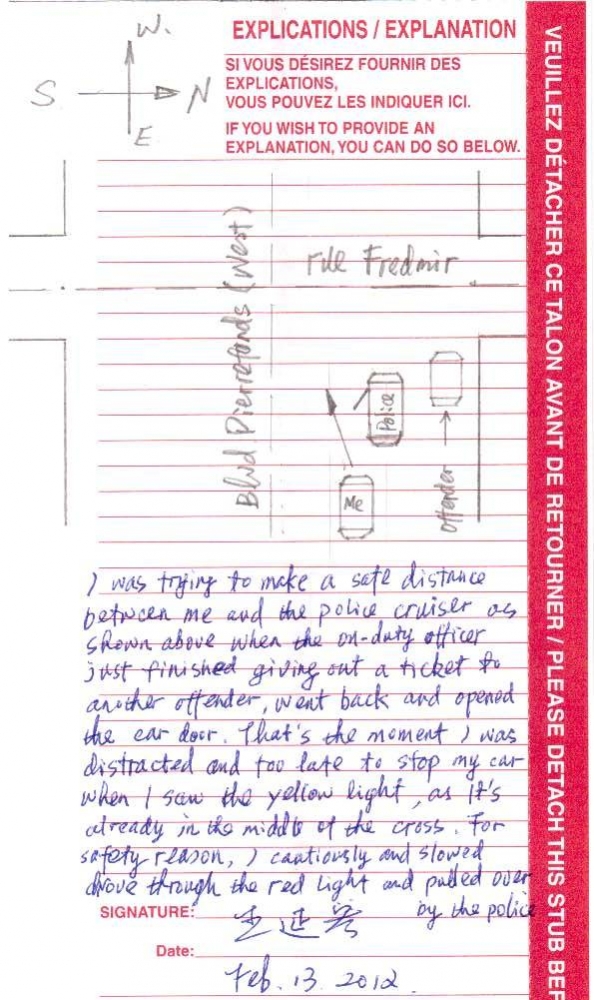 W.
S
N
E
EXPLICATIONS / EXPLANATION
SI VOUS DÉSIREZ FOURNIR DES
EXPLICATIONS,
VOUS POUVEZ LES INDIQUER ICI.
IF YOU WISH TO PROVIDE AN
EXPLANATION, YOU CAN DO SO BELOW.
Blvd Pierrefonds (West)
rue Fredmir
Police
Me
Offender
I was trying to make a safe distance
between me and the police cruiser as
shown above when the on-duty officer
just finished giving out a ticket to
another offender, went back and opened
the car door. That's the moment I was
distracted and too late to stop my car
when I saw the yellow light, as it's
already in the middle of the cross. For
safety reason, I cautiously and slowed
drove through the red light and pulled over
by the police
SIGNATURE: 王延
Date:
Feb. 13. 2012
VEUILLEZ DÉTACHER CE TALON AVANT DE RETOURNER / PLEASE DETACH THIS STUB BEF